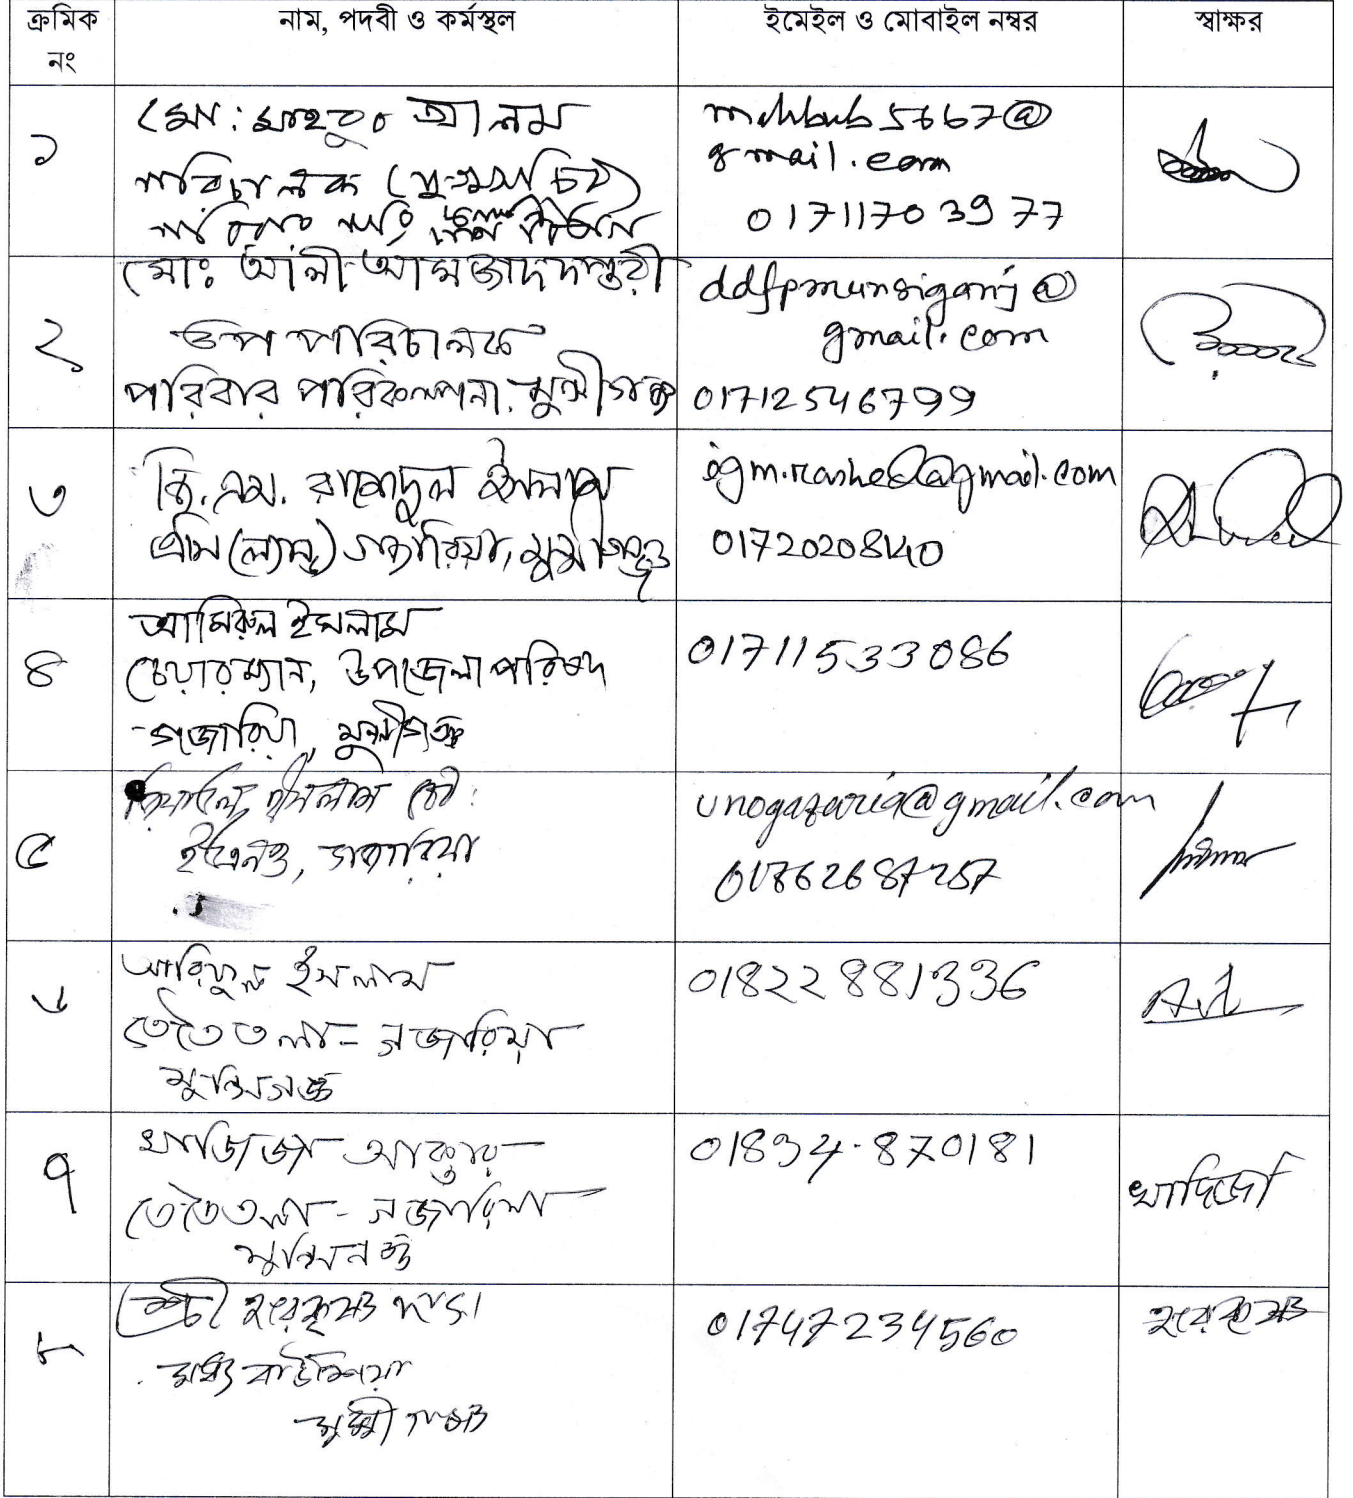 ক্রমিক নং
নাম, পদবী ও কর্মস্থল
ইমেইল ও মোবাইল নম্বর
স্বাক্ষর
১
মো: মাহবুব আলম
পরিচালক (যুগ্মসচিব)
gmail.com
01711703977
২
মোঃ আলী আমজাদ দপ্তরী
উপ পরিচালক
পরিবার পরিকল্পনা, মুন্সীগঞ্জ
ddfpmunsiganj@
gmail.com
01712546799
৩
জি.এম. রাশেদুল ইসলাম
এসি (ল্যান্ড) গজারিয়া, মুন্সীগঞ্জ
01720208140
৪
আমিরুল ইসলাম
চেয়ারম্যান, উপজেলা পরিষদ
গজারিয়া, মুন্সীগঞ্জ
01711533086
৫
ইসলাম চৌ:
ইউএনও, গজারিয়া
unogazaria@gmail.com
৬
আরিফুল ইসলাম
তেতৈতলা - গজারিয়া
মুন্সিগঞ্জ
01822881336
৭
খাদিজা আক্তার
তেতৈতলা - গজারিয়া
মুন্সিগঞ্জ
01834-870181
খাদিজা
৮
শ্রী হরেকৃষ্ণ দাস।
মধ্য বাউশিয়া
মুন্সীগঞ্জ
01747234560
হরেকৃষ্ণ